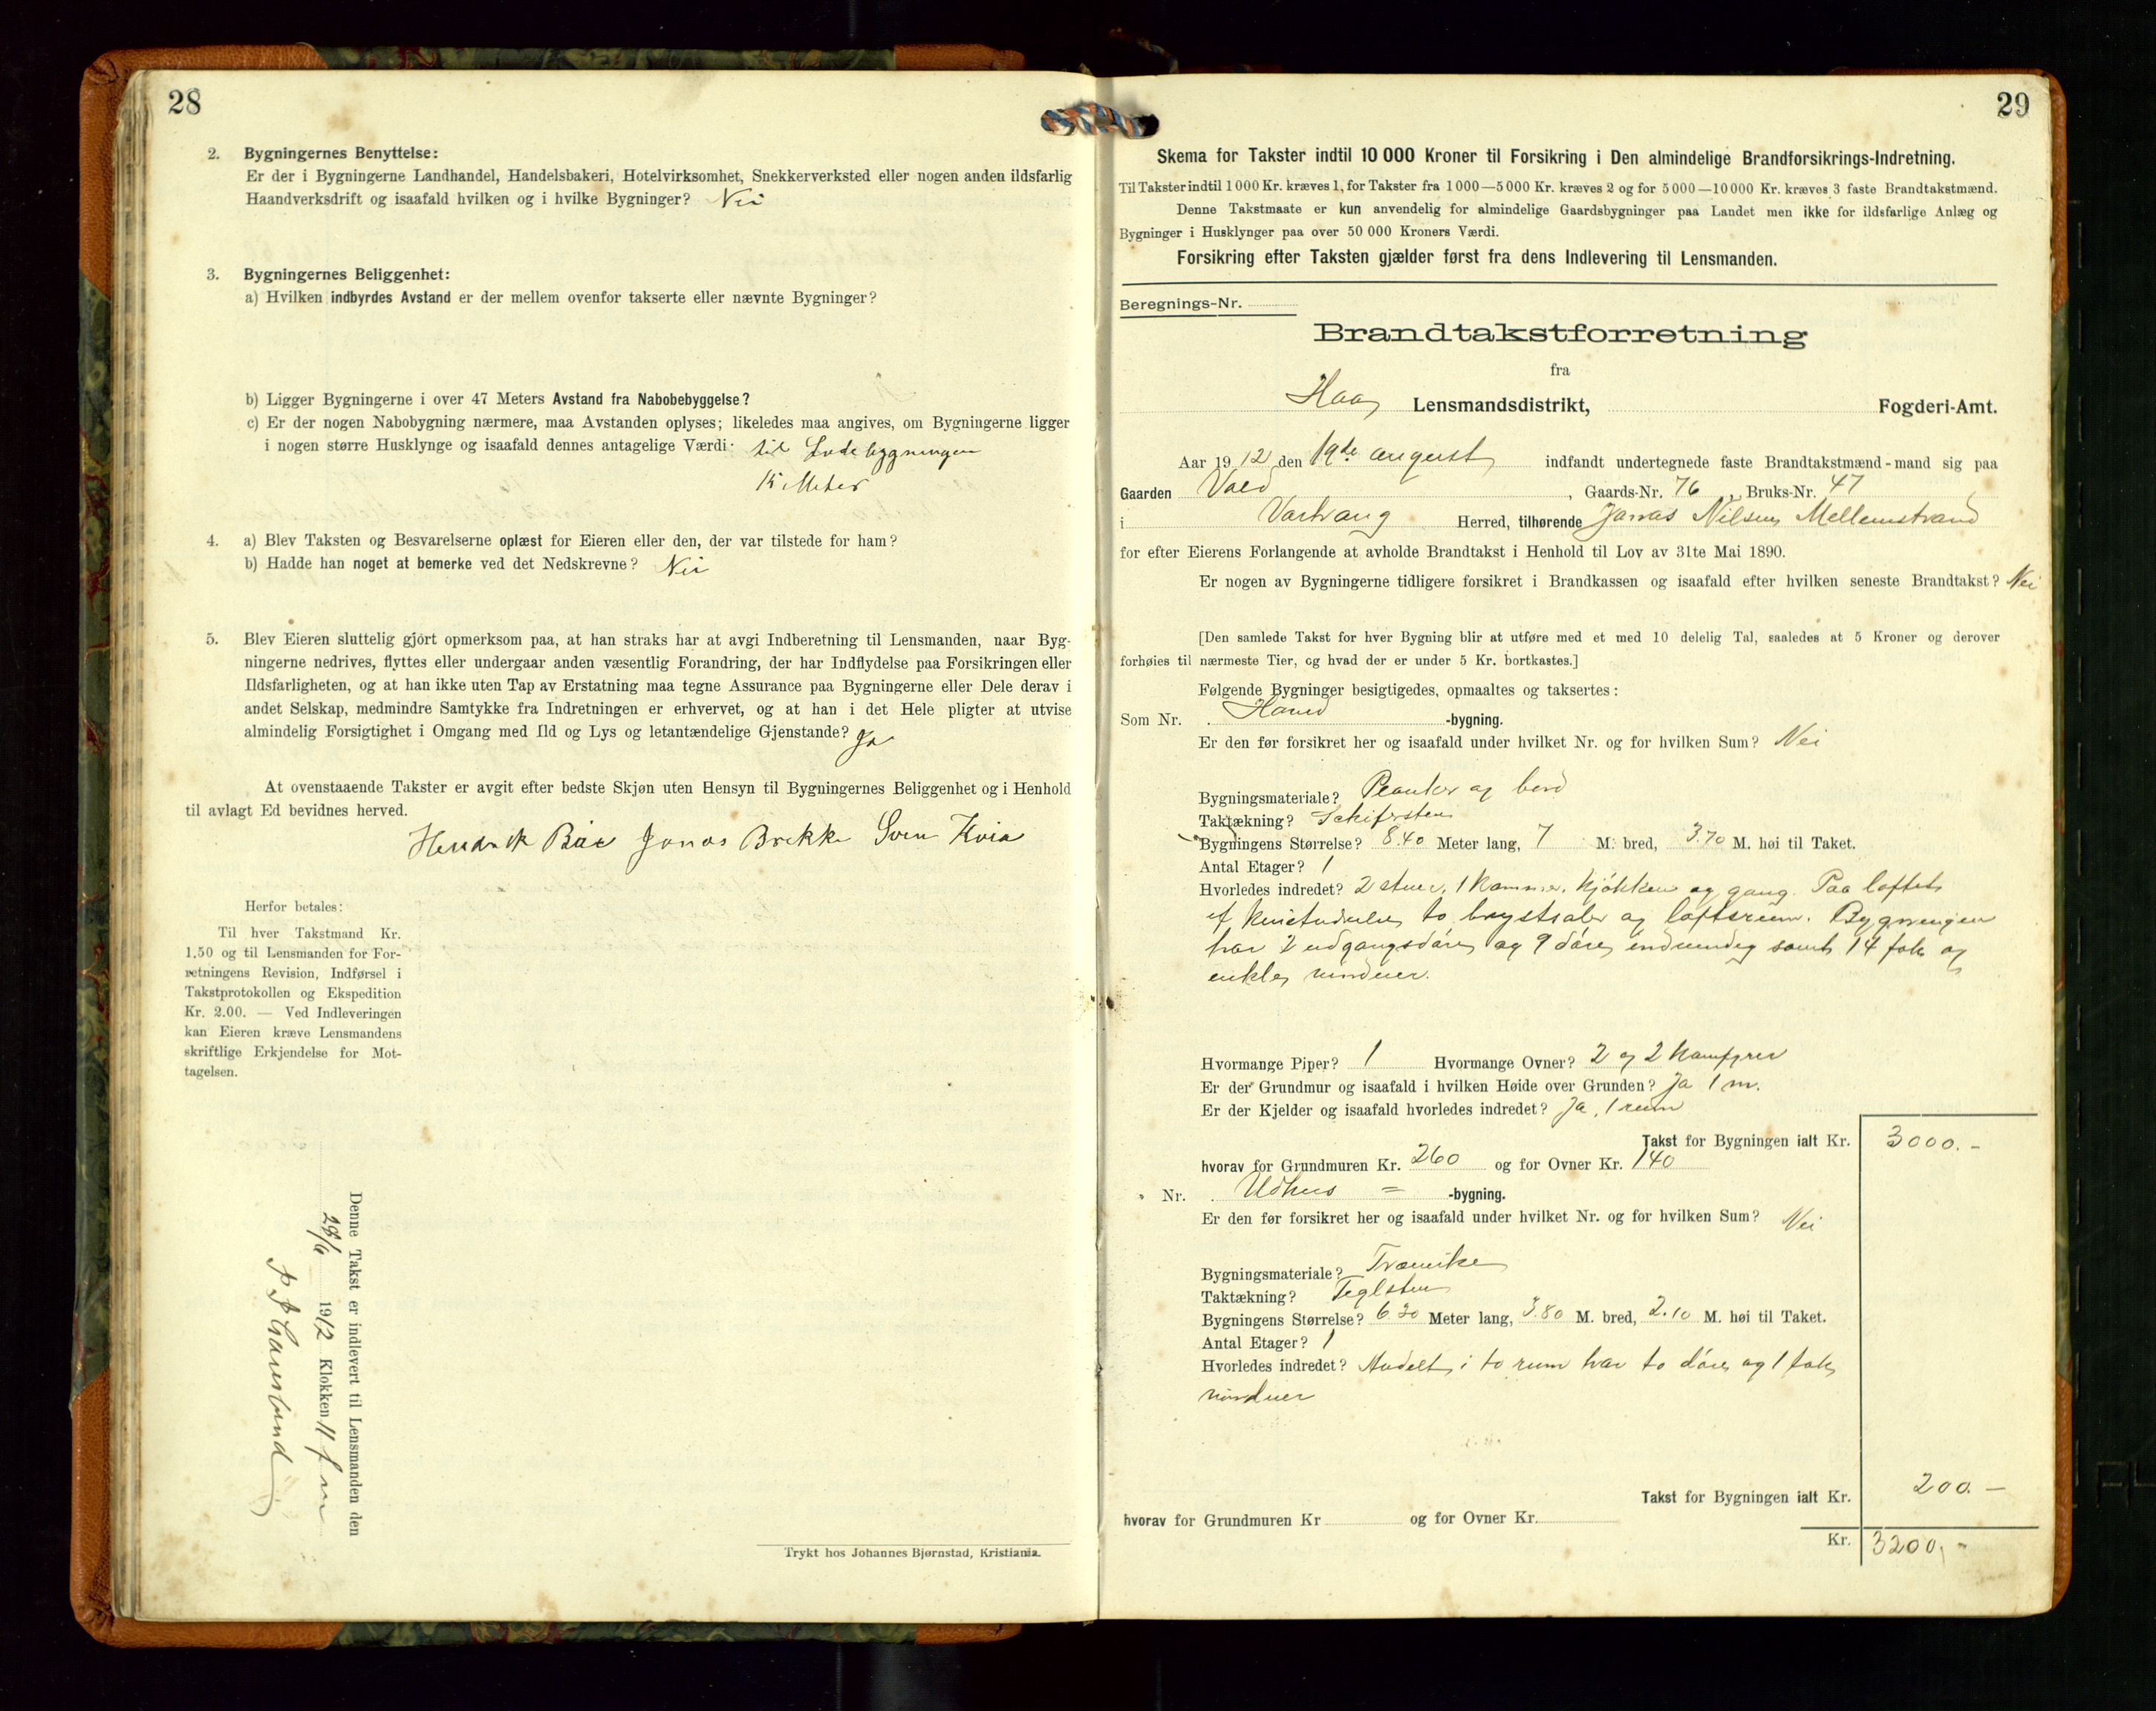 28
2. Bygningernes Benyttelse:
Er der i Bygningerne Landhandel, Handelsbakeri, Hotelvirksomhet, Snekkerverksted eller nogen anden ildsfarlig
Haandverksdrift og isaafald hvilken og i hvilke Bygninger? Nei
3. Bygningernes Beliggenhet:
a) Hvilken indbyrdes Avstand er der mellem ovenfor takserte eller nævnte Bygninger?
b) Ligger Bygningerne i over 47 Meters Avstand fra Nabobebyggelse?
c) Er der nogen Nabobygning nærmere, maa Avstanden oplyses; likeledes maa angives, om Bygningerne ligger
i nogen større Husklynge og isaafald dennes antagelige Værdi: til Lodebygningen
15 Meter
4. a) Blev Taksten og Besvarelserne oplæst for Eieren eller den, der var tilstede for ham?
b) Hadde han noget at bemerke ved det Nedskrevne? Nei
5. Blev Eieren sluttelig gjort opmerksom paa, at han straks har at avgi Indberetning til Lensmanden, naar Byg-
ningerne nedrives, flyttes eller undergaar anden væsentlig Forandring, der har Indflydelse paa Forsikringen eller
Ildsfarligheten, og at han ikke uten Tap av Erstatning maa tegne Assurance paa Bygningerne eller Dele derav i
andet Selskap, medmindre Samtykke fra Indretningen er erhvervet, og at han i det Hele pligter at utvise
almindelig Forsigtighet i Omgang med Ild og Lys og letantændelige Gjenstande? Ja
At ovenstaaende Takster er avgit efter bedste Skjøn uten Hensyn til Bygningernes Beliggenhet og i Henhold
til avlagt Ed bevidnes herved.
Hendrik Bue Jonas Brekke Sven Kvia
Herfor betales:
Til hver Takstmand Kr.
1.50 og til Lensmanden for For-
retningens Revision, Indførsel i
Takstprotokollen og Ekspedition
Kr. 2.00. — Ved Indleveringen
kan Eieren kræve Lensmandens
skriftlige Erkjendelse for Mot-
tagelsen.
Denne Takst er indlevert til Lensmanden den
1912 Klokken 11 fm
Trykt hos Johannes Bjørnstad, Kristiania.
29
Skema for Takster indtil 10 000 Kroner til Forsikring i Den almindelige Brandforsikrings-Indretning.
Til Takster indtil 1000 Kr. kræves 1, for Takster fra 1000—5000 Kr. kræves 2 og for 5000—10000 Kr. kræves 3 faste Brandtakstmænd.
Denne Takstmaate er kun anvendelig for almindelige Gaardsbygninger paa Landet men ikke for ildsfarlige Anlæg og
Bygninger i Husklynger paa over 50 000 Kroners Værdi.
Forsikring efter Taksten gjælder først fra dens Indlevering til Lensmanden.
Beregnings-Nr.
Brandtakstforretning
fra
Haa Lensmandsdistrikt, Fogderi-Amt.
Aar 1912 den 19de august indfandt undertegnede faste Brandtakstmænd-mand sig paa
Gaarden Vold, Gaards-Nr. 76, Bruks-Nr. 47
i Varhaug Herred, tilhørende Jonas Nilsen Mellemstrand
for efter Eierens Forlangende at avholde Brandtakst i Henhold til Lov av 31te Mai 1890.
Er nogen av Bygningerne tidligere forsikret i Brandkassen og isaafald efter hvilken seneste Brandtakst? Nei
[Den samlede Takst for hver Bygning blir at utføre med et med 10 delelig Tal, saaledes at 5 Kroner og derover
forhøies til nærmeste Tier, og hvad der er under 5 Kr. bortkastes.]
Følgende Bygninger besigtigedes, opmaaltes og taksertes:
Som Nr. . Hoved -bygning.
Er den før forsikret her og isaafald under hvilket Nr. og for hvilken Sum? Nei
Bygningsmateriale? Planker og bord
Taktækning? Schifersten
Bygningens Størrelse? 8.40 Meter lang, 7 M. bred, 3.70 M. høi til Taket.
Antal Etager? 1
Hvorledes indredet? 2 stuer, 1 kammer, kjøkken og gang. Paa loftet
to og loftsrum. Bygningen
har 2 udgangsdøre og 9 døre indvendig samt 14 fah og
enkle vinduer.
Hvormange Piper? 1 Hvormange Ovner? 2 og 2 komfyrer
Er der Grundmur og isaafald i hvilken Høide over Grunden? Ja 1 m.
Er der Kjelder og isaafald hvorledes indredet? Ja, 1 rum
Takst for Bygningen ialt Kr. 3000.-
hvorav for Grundmuren Kr. 260 og for Ovner Kr. 140
" Nr. . Udhus = -bygning.
Er den før forsikret her og isaafald under hvilket Nr. og for hvilken Sum? Nei
Bygningsmateriale?
Taktækning? Teglsten
Bygningens Størrelse? 6.30 Meter lang, 3.80 M. bred, 2.10 M. høi til Taket.
Antal Etager? 1
Hvorledes indredet? Avdelt i to rum har to døre og 1 fah
vinduer
Takst for Bygningen ialt Kr. 200.-
hvorav for Grundmuren Kr og for Ovner Kr.
Kr. 3200,-